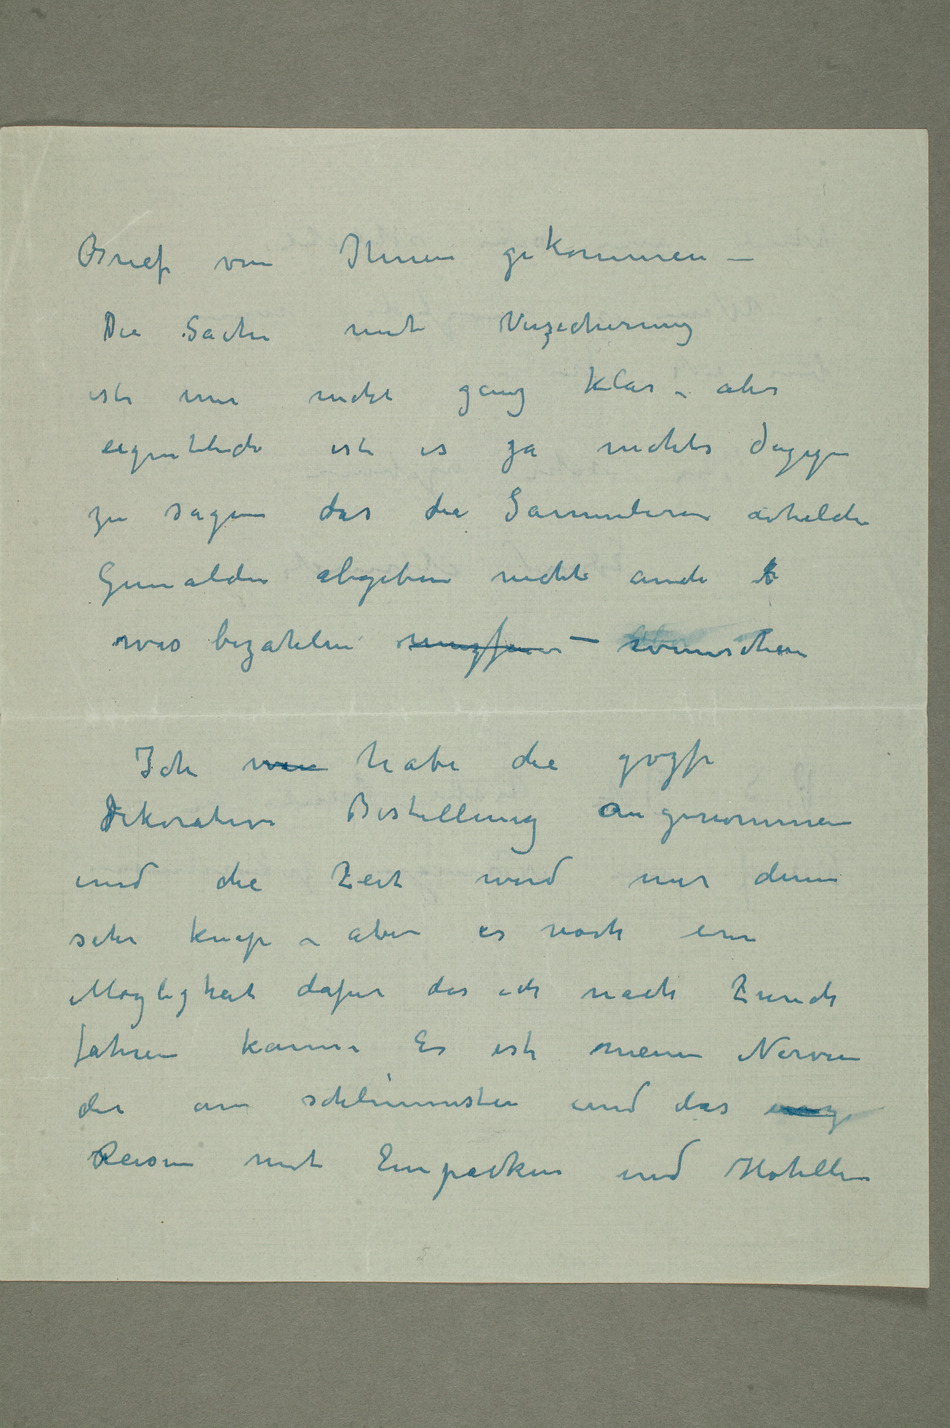 Brief von Ihnen gekommen –
Die Sache mit Verzicherung
ist mir nicht ganz klar – aber
eigentlich ist es ja nichts dagegen
zu sagen das die Sammleren
Gemälden abgeben nicht
was bezahlen – wünschen
Ich habe die grozse
Dekorative Bestellung angenommen
und die Zeit wird mir denn
sehr knap – aber es noch ein
Mögligheit dafur das ich nach Zurich
fahren kann. Es ist meine Nerven
die am schlimmsten und das
Reisen mit Einpacken und Hotellen